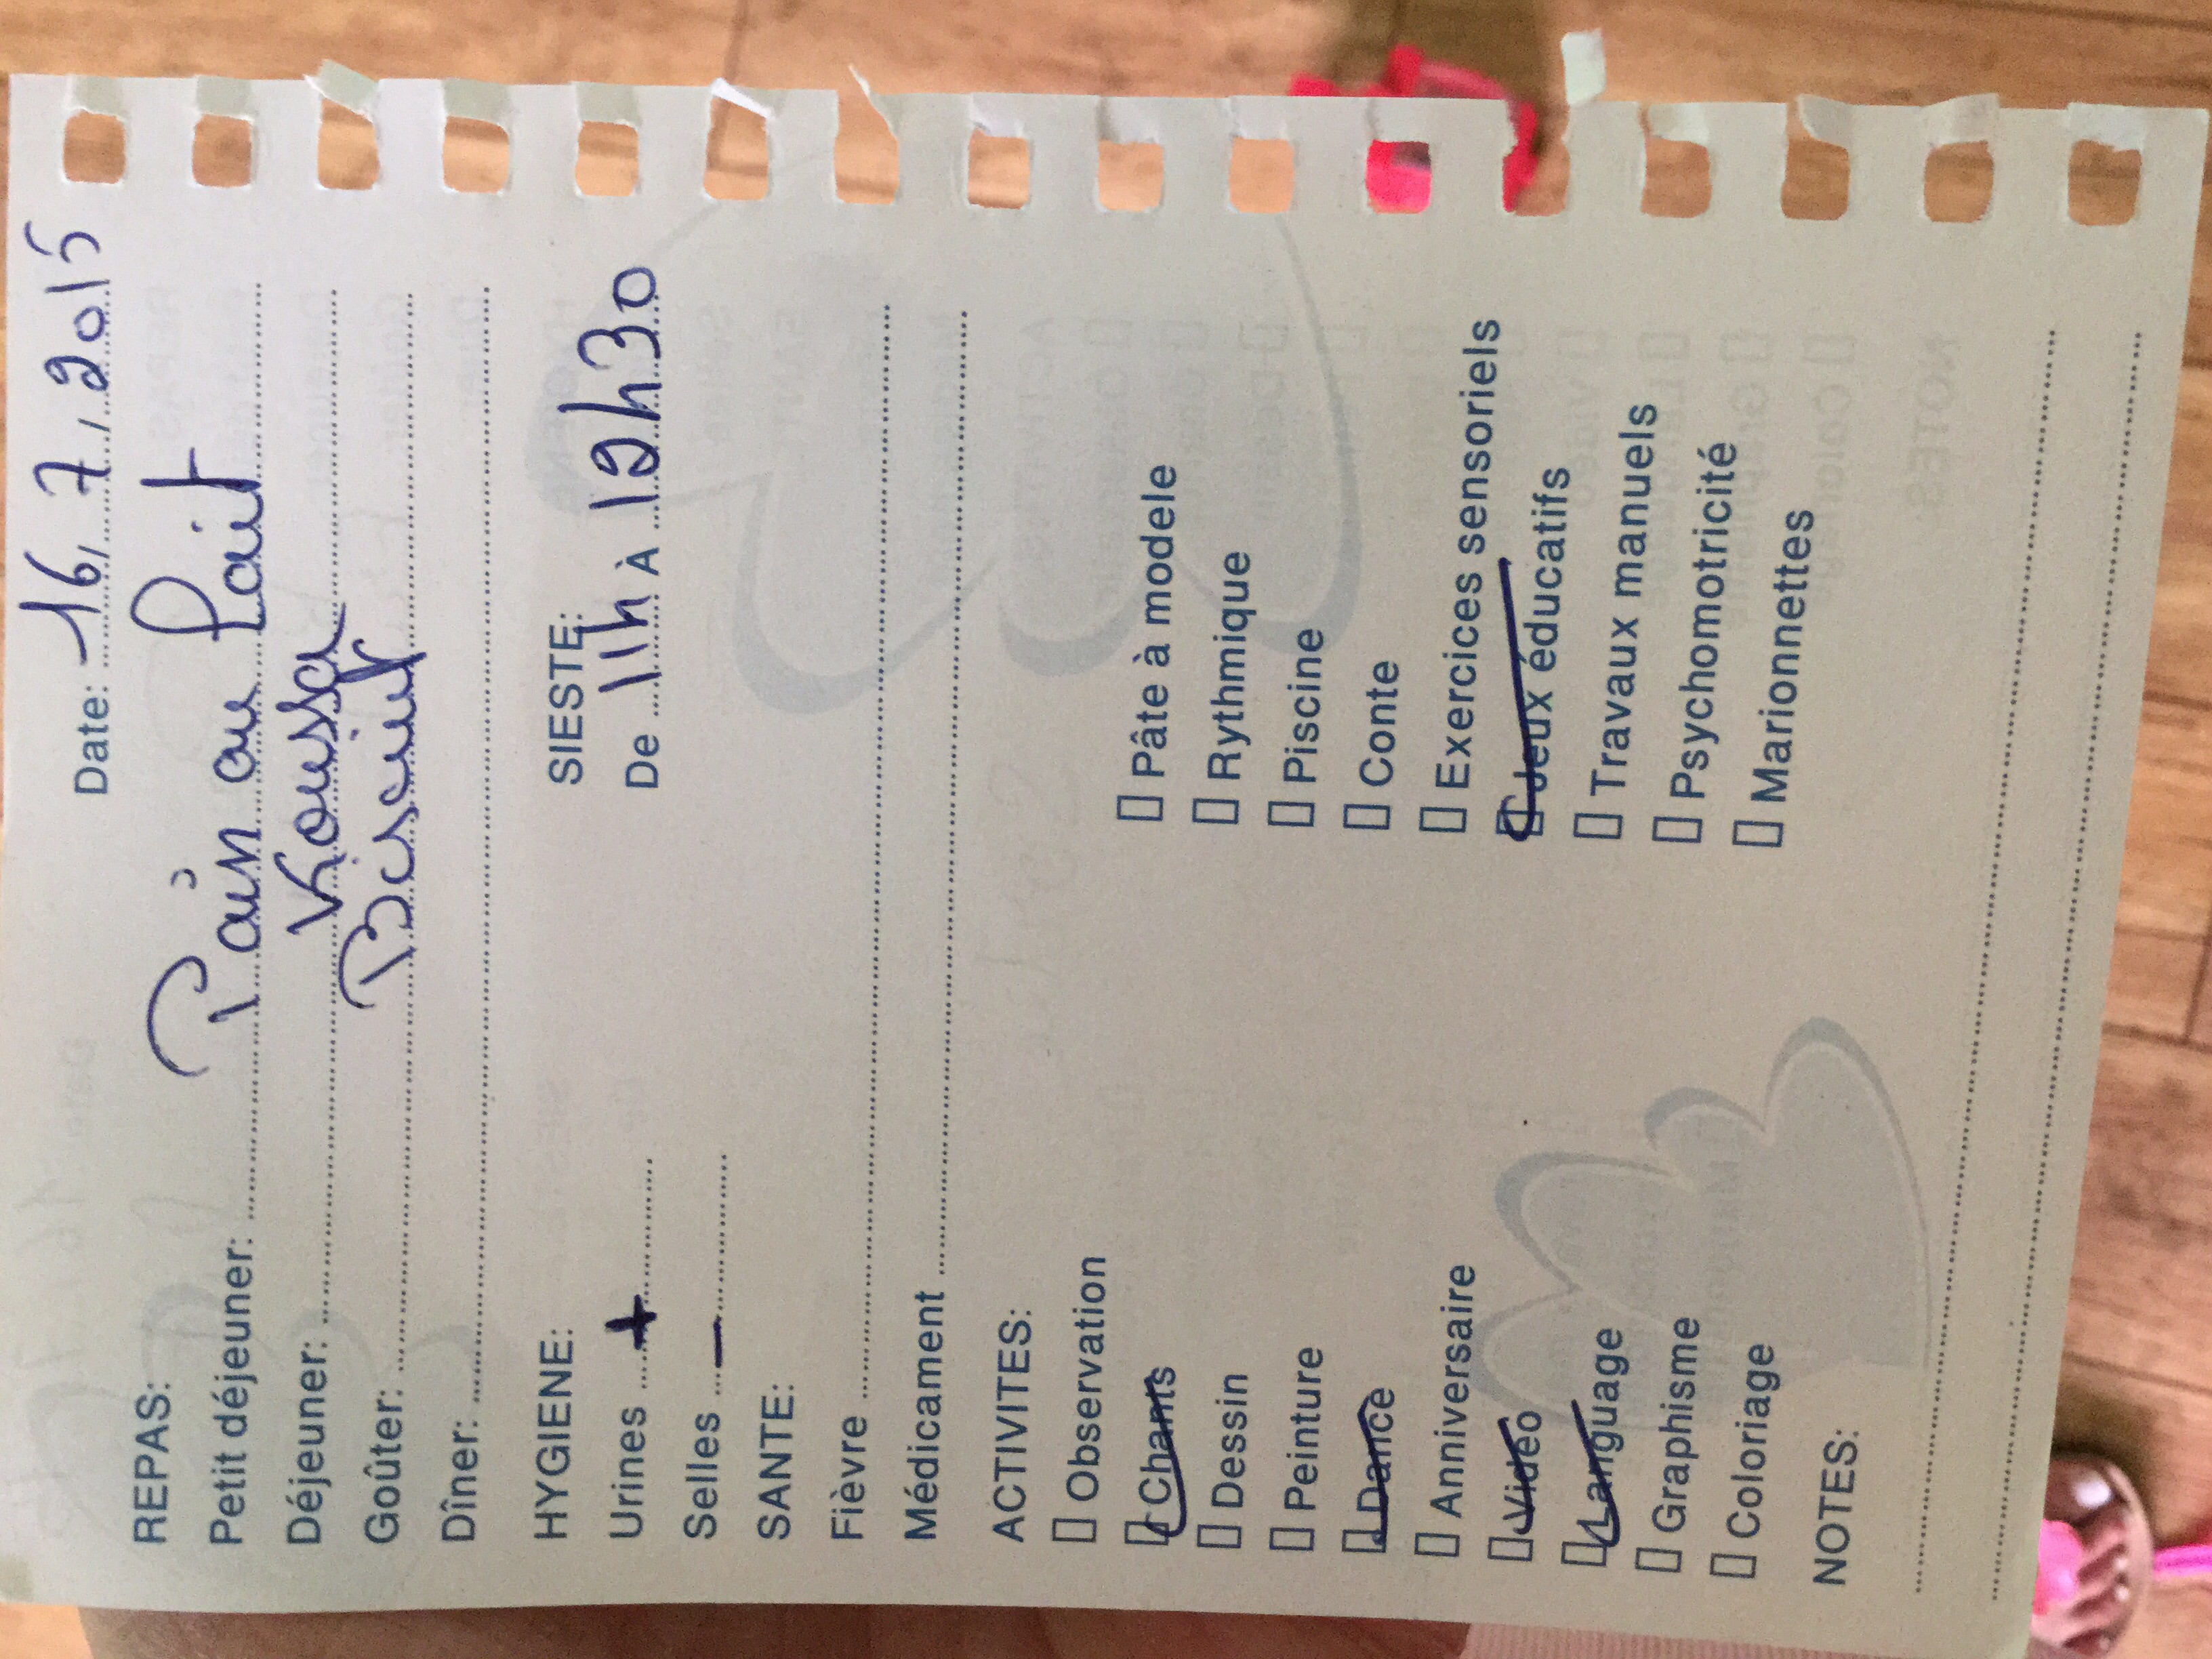 Date: 16/7/2015
REPAS:
Petit déjeuner: Pain au lait
Déjeuner: Koussa
Goûter: Biscuit
Dîner:
HYGIENE:
Urines +
Selles –
SIESTE:
De 11h À 12h30
SANTE:
Fièvre
Médicament
ACTIVITES:
Observation
Chants
Dessin
Peinture
Dance
Anniversaire
Vidéo
Language
Graphisme
Coloriage
Pâte à modele
Rythmique
Piscine
Conte
Exercices sensoriels
Jeux éducatifs
Travaux manuels
Psychomotricité
Marionnettes
NOTES: